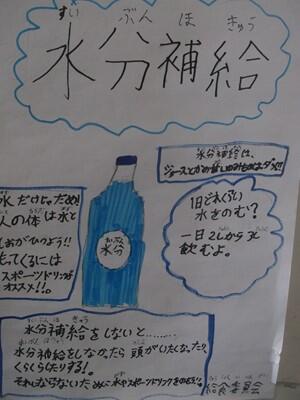 すい ぶん ほ きゅう
水分補給
水分補給は、
ジュースとか
水だけじゃだめ!
人の体は水と
しおがひつよう!!
スポーツドリンクが
オススメ!!。
すいぶん
水分
1日どれくらい
水をのむ?
一日2Lから
飲むよ。
すいぶん ほ きゅう
水分補給をしないと………
水分補給をしなかったら頭がいたくなったり、
くらくらしたりする!。
そうならないために水やスポーツドリンクをのもう!。
給食委員会